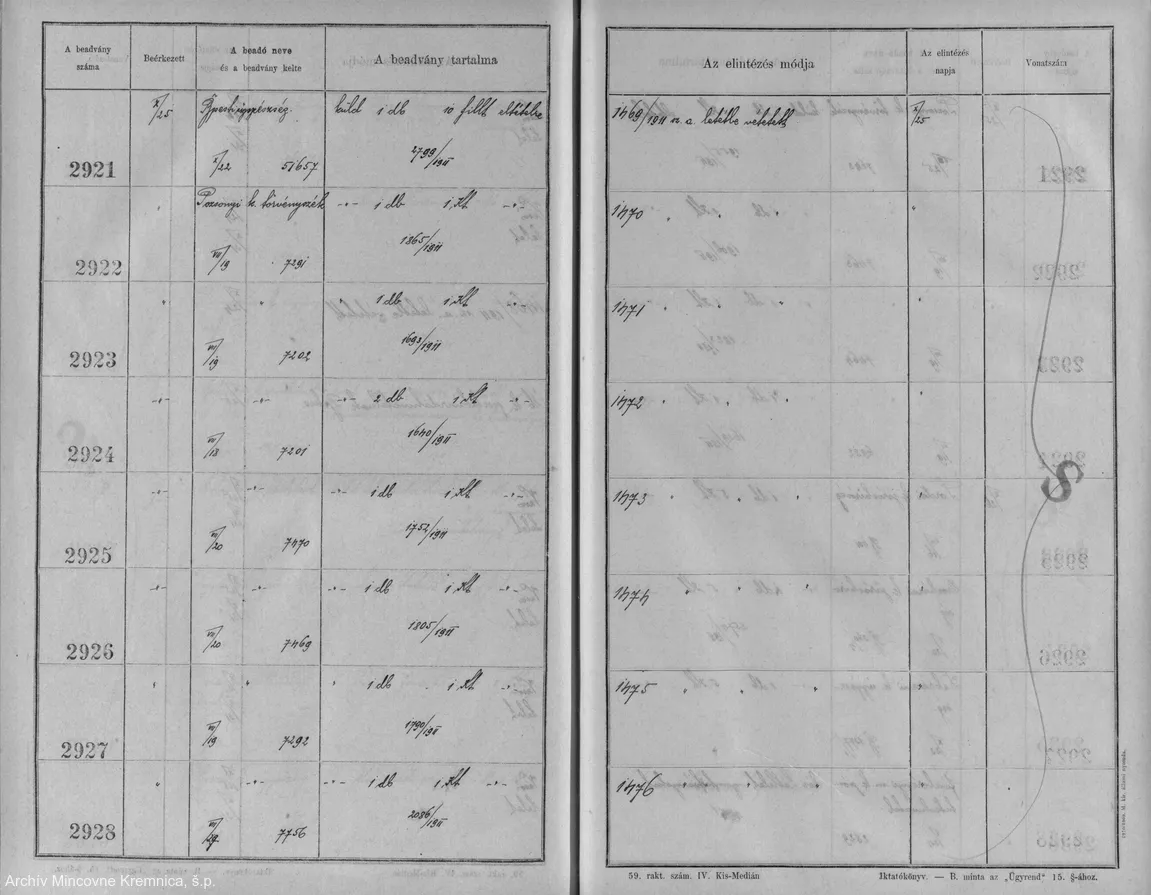 A beadvány száma
Beérkezett
A beadó neve és a beadvány kelte
A beadvány tartalma
Az elintézés módja
Az elintézés napja
Vonatszám
X/25 küld 1 db 10 fillt 1469/1911 sz. a. letétbe X/25
2921 X/22 51657 2799/1911
Pozsonyi k. törvényszék -"- 1 db 1 Kt -"- 1470 "
2922 VII/19 7291 1865/1911
" " 1 db 1 Kt 1471
2923 VII/19 7202 1693/1911
-"- -"- -"- 2 db 1 Kt -"- 1472
2924 VII/18 7201 1640/1911
-"- -"- -"- 1 db 1 Kt -"- 1473
2925 VII/20 7470 1752/1911
-"- -"- -"- 1 db 1 Kt -"- 1474
2926 VII/20 7469 1805/1911
" " " 1 db 1 Kt 1475
2927 VII/19 7292 1790/1911
" -"- -"- 1 db 1 Kt -"- 1476
2928 VII/29 7756 2086/1911
59. rakt. szám. IV. Kis-Medián
Iktatókönyv. — B. minta az „Ügyrend" 15. §-ához.
Archív Mincovne Kremnica, š.p.